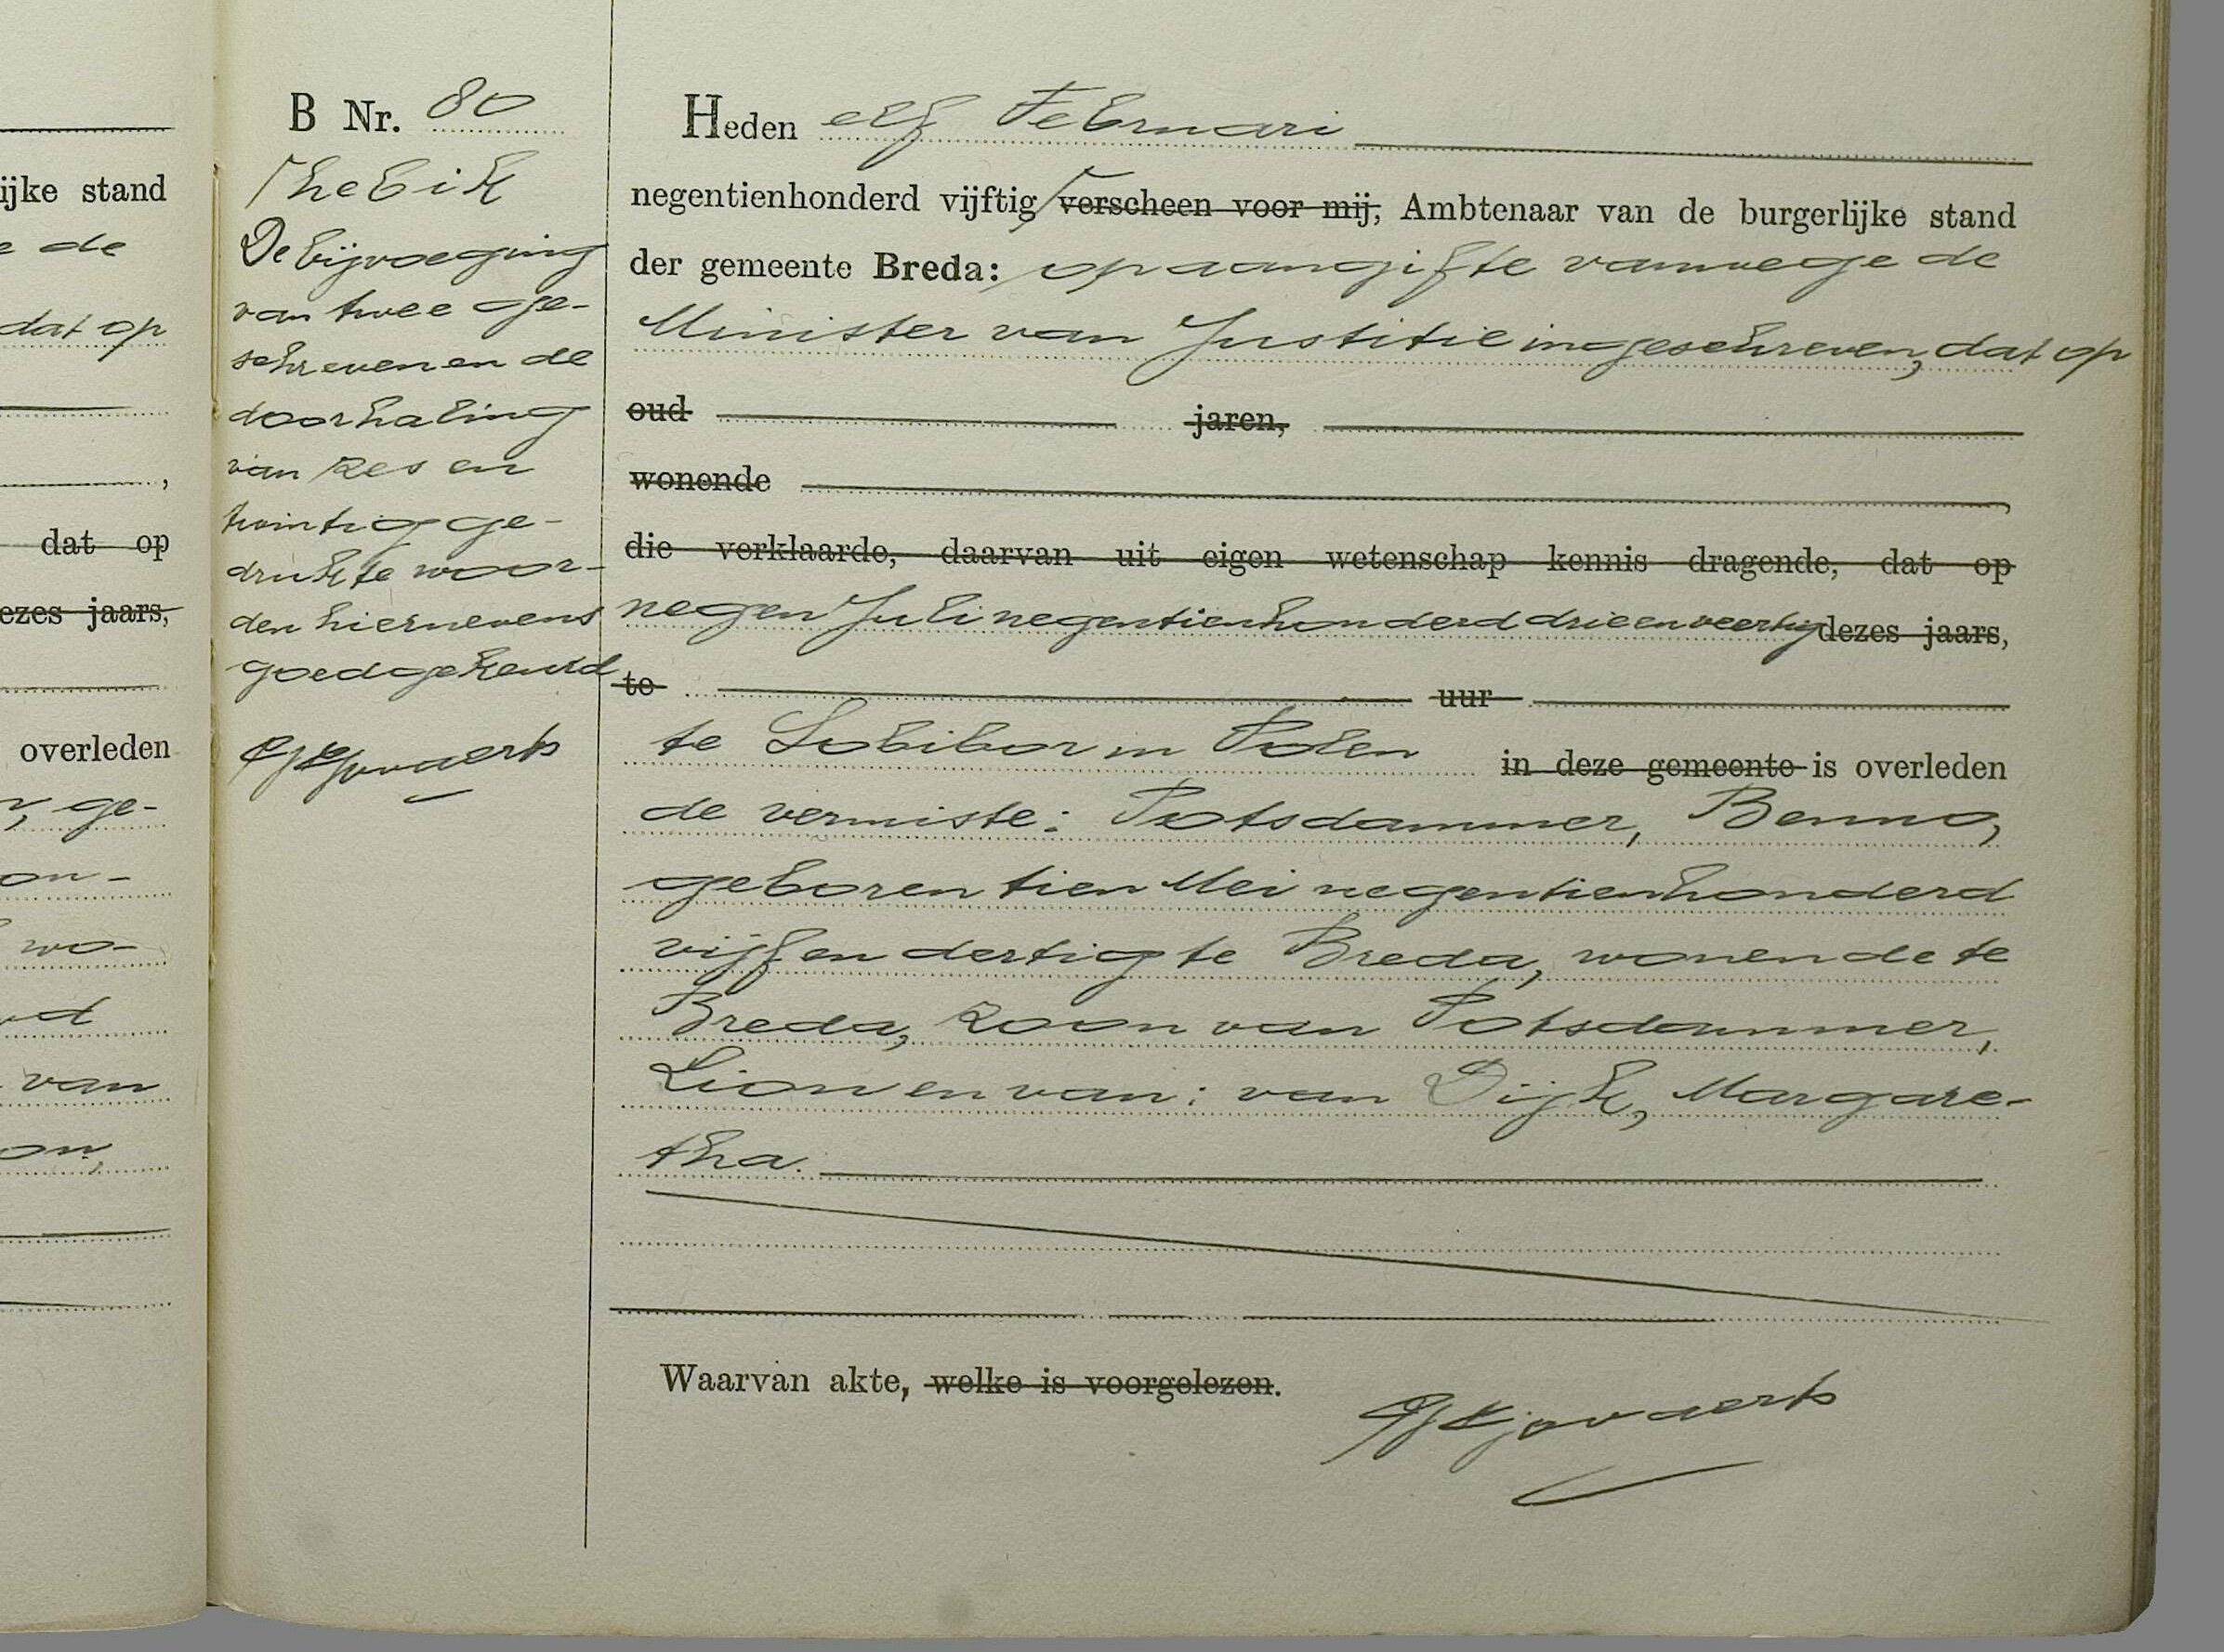 ijke stand
e de
dat op
dat op
ezes jaars,
overleden
ge-
on-
wo-
van
on,
B Nr. 80
⌈heb ik
De bijvoeging
van twee ge-
schreven en de
doorhaling
van zes en
twintig ge-
drukte woor-
den hiernevens
goedgekeurd
Heden elf Februari
negentienhonderd vijftig, ⌈verscheen voor mij, Ambtenaar van de burgerlijke stand
der gemeente Breda: op aangifte vanwege de
Minister van Justitie ingeschreven, dat op
oud jaren,
wonende
die verklaarde, daarvan uit eigen wetenschap kennis dragende, dat op
negen Juli negentienhonderd drieenveertig dezes jaars,
te uur
te Sobibor in Polen in deze gemeente is overleden
de vermiste: Potsdammer, Benno,
geboren tien Mei negentienhonderd
vijfendertig te Breda, wonende te
Breda, zoon van Potsdammer,
Lion en van: van Dijk, Margare-
tha.
Waarvan akte, welke is voorgelezen.